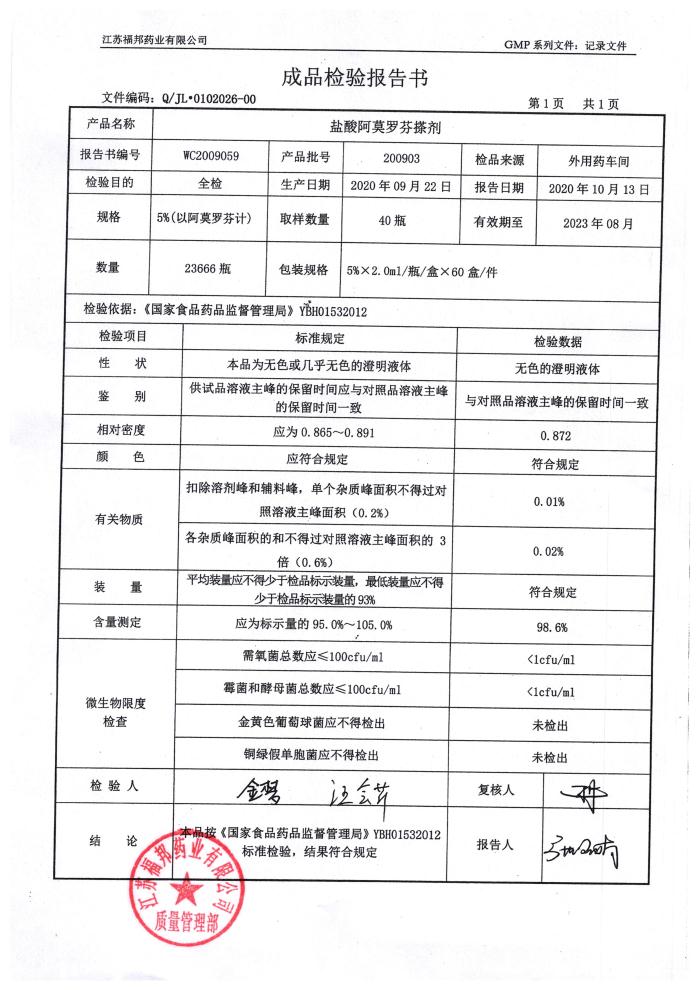 江苏福邦药业有限公司
GMP 系列文件：记录文件
成品检验报告书
文件编码：Q/JL•0102026-00
第 1 页 共 1 页
产品名称 盐酸阿莫罗芬搽剂
报告书编号 WC2009059 产品批号 200903 检品来源 外用药车间
检验目的 全检 生产日期 2020 年 09 月 22 日 报告日期 2020 年 10 月 13 日
规格 5%(以阿莫罗芬计) 取样数量 40 瓶 有效期至 2023 年 08 月
数量 23666 瓶 包装规格 5%×2.0ml/瓶/盒×60 盒/件
检验依据：《国家食品药品监督管理局》YBH01532012
检验项目 标准规定 检验数据
性 状 本品为无色或几乎无色的澄明液体 无色的澄明液体
鉴 别 供试品溶液主峰的保留时间应与对照品溶液主峰
的保留时间一致 与对照品溶液主峰的保留时间一致
相对密度 应为 0.865～0.891 0.872
颜 色 应符合规定 符合规定
有关物质 扣除溶剂峰和辅料峰，单个杂质峰面积不得过对
照溶液主峰面积（0.2%） 0.01%
各杂质峰面积的和不得过对照溶液主峰面积的 3
倍（0.6%） 0.02%
装 量 平均装量应不得少于检品标示装量，最低装量应不得
少于检品标示装量的 93% 符合规定
含量测定 应为标示量的 95.0%～105.0% 98.6%
微生物限度
检查
需氧菌总数应≤100cfu/ml <1cfu/ml
霉菌和酵母菌总数应≤100cfu/ml <1cfu/ml
金黄色葡萄球菌应不得检出 未检出
铜绿假单胞菌应不得检出 未检出
检 验 人 复核人
结 论 本品按《国家食品药品监督管理局》YBH01532012
标准检验，结果符合规定 报告人
江苏福邦药业有限公司
质量管理部